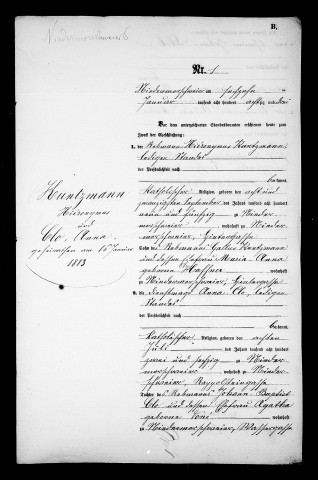 Niedermorschweier
B.
Nr. 1
Niedermorschweier am sechszehn
Januar tausend acht hundert achtzig drei
Vor dem unterzeichneten Standesbeamten erschienen heute zum
Zweck der Eheschließung:
1. der Rebmann Hieronymus Huntzmann
ledigen Standes
der Persönlichkeit nach
bekannt,
katholischer Religion, geboren den acht und
zwanzigsten September des Jahres tausend acht hundert
neun und fünfzig zu Nieder
morschweier, wohnhaft zu Nieder
morschweier, Hintergasse
Sohn des Rebmanns Gallus Huntzmann
und dessen Ehefrau Maria Anna
geborene Haffner wohnhaft
zu Niedermorschweier, Hintergasse
2. die Dienstmagd Anna Clo, ledigen
Standes
der Persönlichkeit nach
bekannt,
katholischer Religion, geboren den achten
Juli des Jahres tausend acht hundert
zwei und sechzig zu Nieder
morschweier, wohnhaft zu Niedermor
schweier Rappolsteingasse
Tochter des Rebmanns Johann Baptist
Clo und dessen Ehefrau Agatha
geborene Voné wohnhaft
zu Niedermorschweier, Wassergasse
Huntzmann
Hieronymus
und
Clo, Anna
geheirathen am 16 Januar
1883